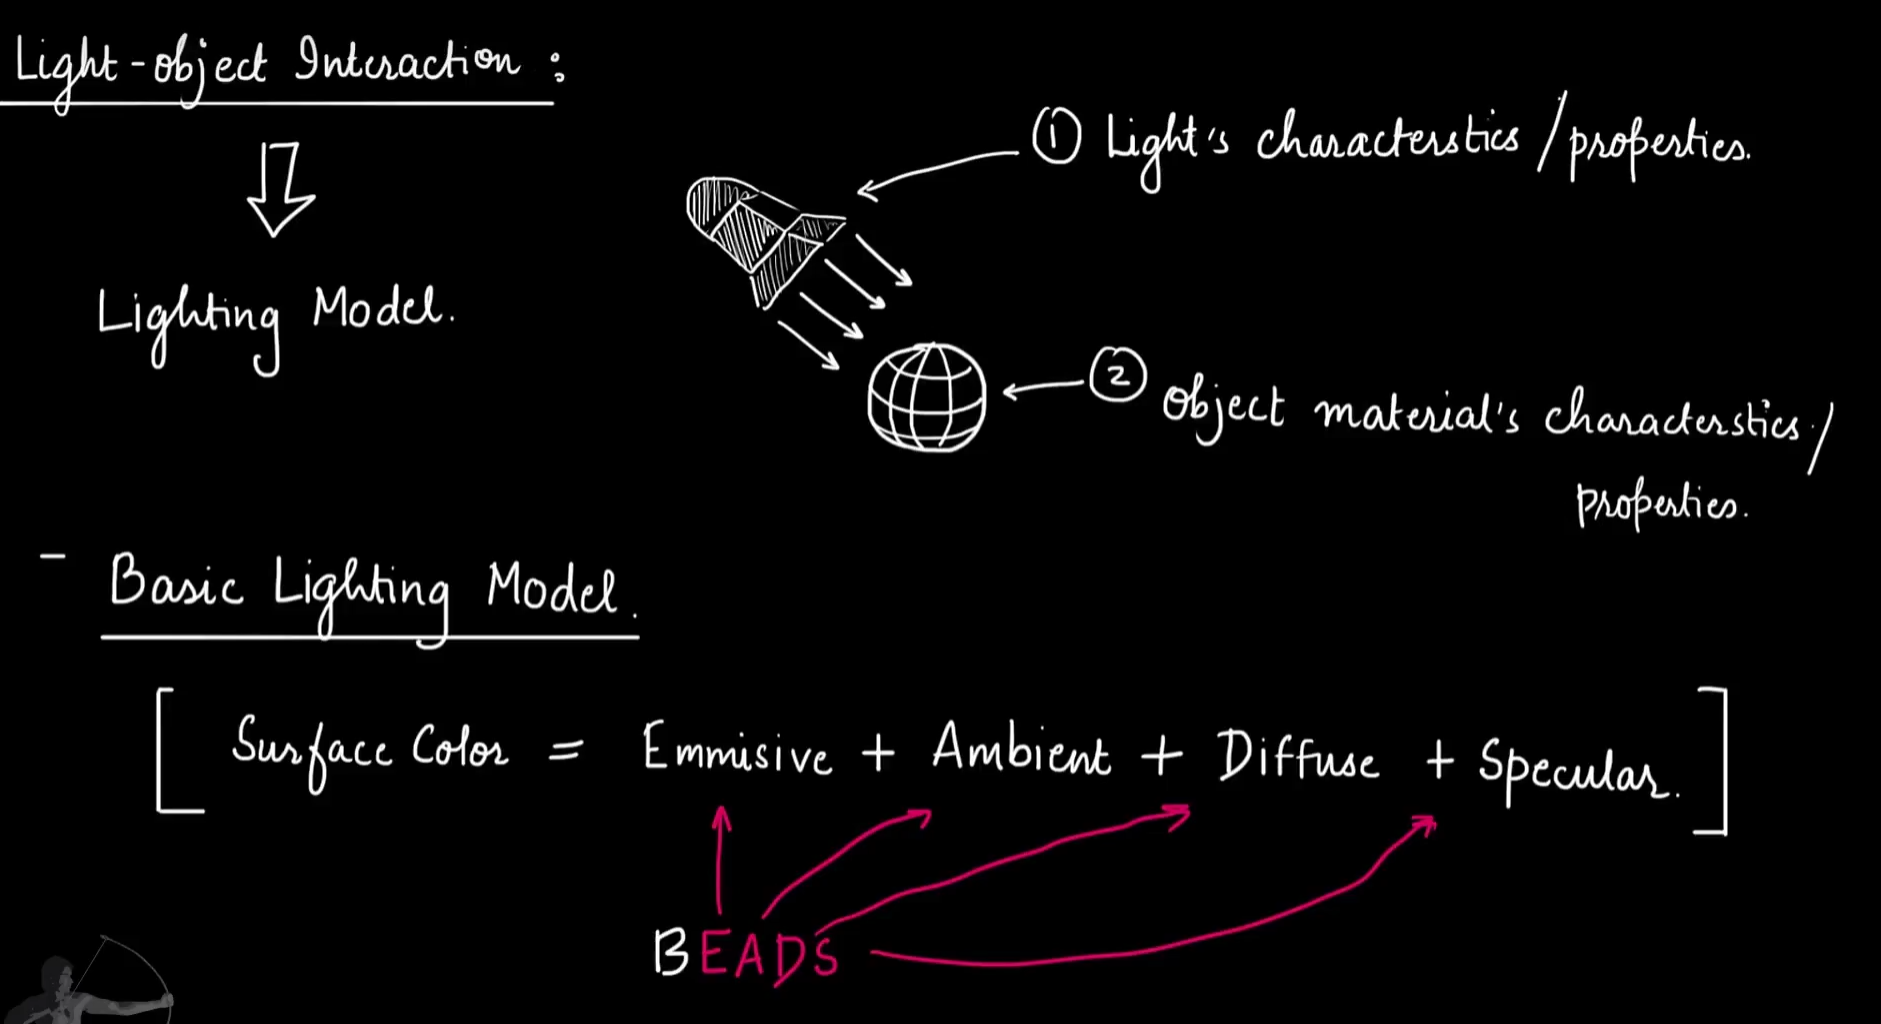 Light-object Interaction :
① Light's characterstics / properties.
Lighting Model.
② Object material's characterstics /
properties.
- Basic Lighting Model.
[ Surface Color = Emmisive + Ambient + Diffuse + Specular. ]
BEADS